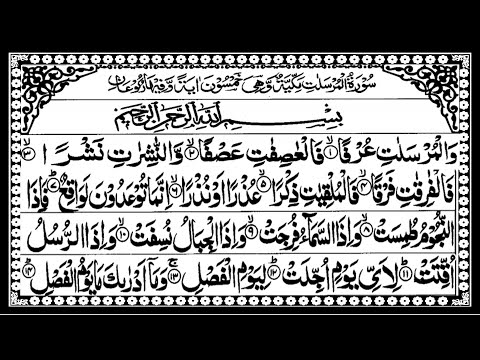 سُوْرَةُ الْمُرْسَلٰتِ مَكِّيَّةٌ وَّهِىَ خَمْسُوْنَ اٰيَةً وَّفِيْهَا رُكُوْعَانِ
بِسْمِ اللّٰهِ الرَّحْمٰنِ الرَّحِيْمِ
وَالْمُرْسَلٰتِ عُرْفًا ۙ‏﴿۱﴾ فَالْعٰصِفٰتِ عَصْفًا ۙ‏﴿۲﴾ وَّالنّٰشِرٰتِ نَشْرًا ۙ‏﴿۳﴾
فَالْفٰرِقٰتِ فَرْقًا ۙ‏﴿۴﴾ فَالْمُلْقِيٰتِ ذِكْرًا ۙ‏﴿۵﴾ عُذْرًا اَوْ نُذْرًا ۙ‏﴿۶﴾ اِنَّمَا تُوْعَدُوْنَ لَوَاقِعٌ ؕ‏﴿۷﴾ فَاِذَا
النُّجُوْمُ طُمِسَتْ ۙ‏﴿۸﴾ وَاِذَا السَّمَآءُ فُرِجَتْ ۙ‏﴿۹﴾ وَاِذَا الْجِبَالُ نُسِفَتْ ۙ‏﴿۱۰﴾ وَاِذَا الرُّسُلُ
اُقِّتَتْ ؕ‏﴿۱۱﴾ لِاَىِّ يَوْمٍ اُجِّلَتْ ؕ‏﴿۱۲﴾ لِيَوْمِ الْفَصْلِ ۚ‏﴿۱۳﴾ وَمَاۤ اَدْرٰىكَ مَا يَوْمُ الْفَصْلِ ؕ‏﴿۱۴﴾